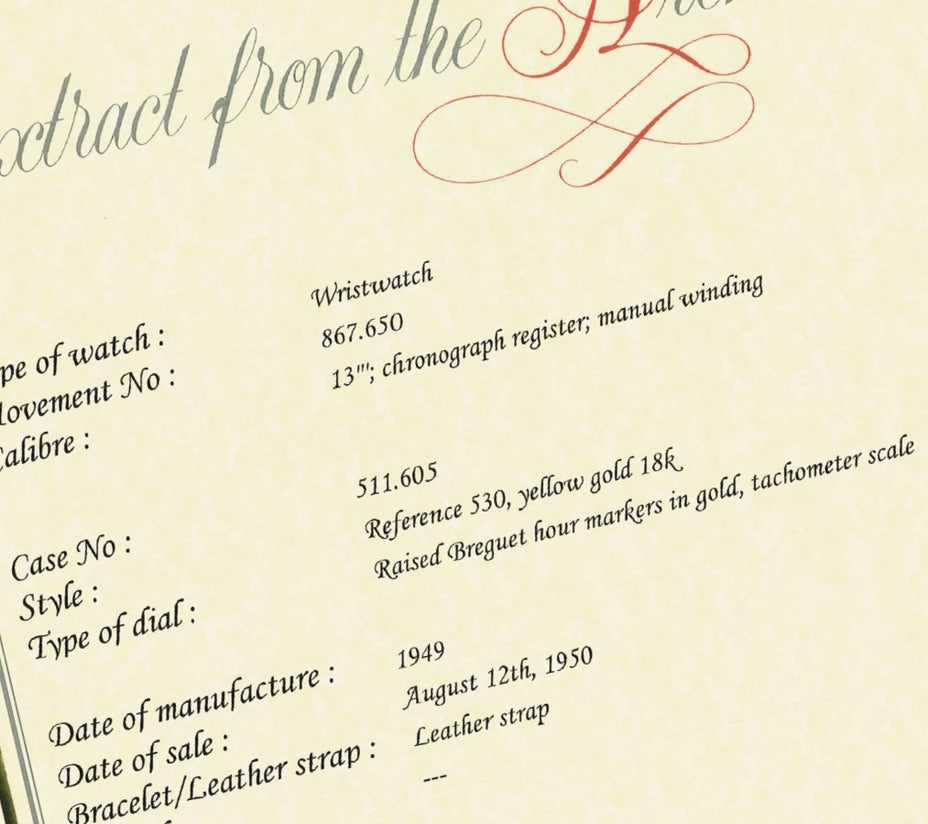 xtract from the
pe of watch : Wristwatch
ovement No : 867.650
alibre : 13"'; chronograph register; manual winding
Case No : 511.605
Style : Reference 530, yellow gold 18k
Type of dial : Raised Breguet hour markers in gold, tachometer scale
Date of manufacture : 1949
Date of sale : August 12th, 1950
Bracelet/Leather strap : Leather strap
---